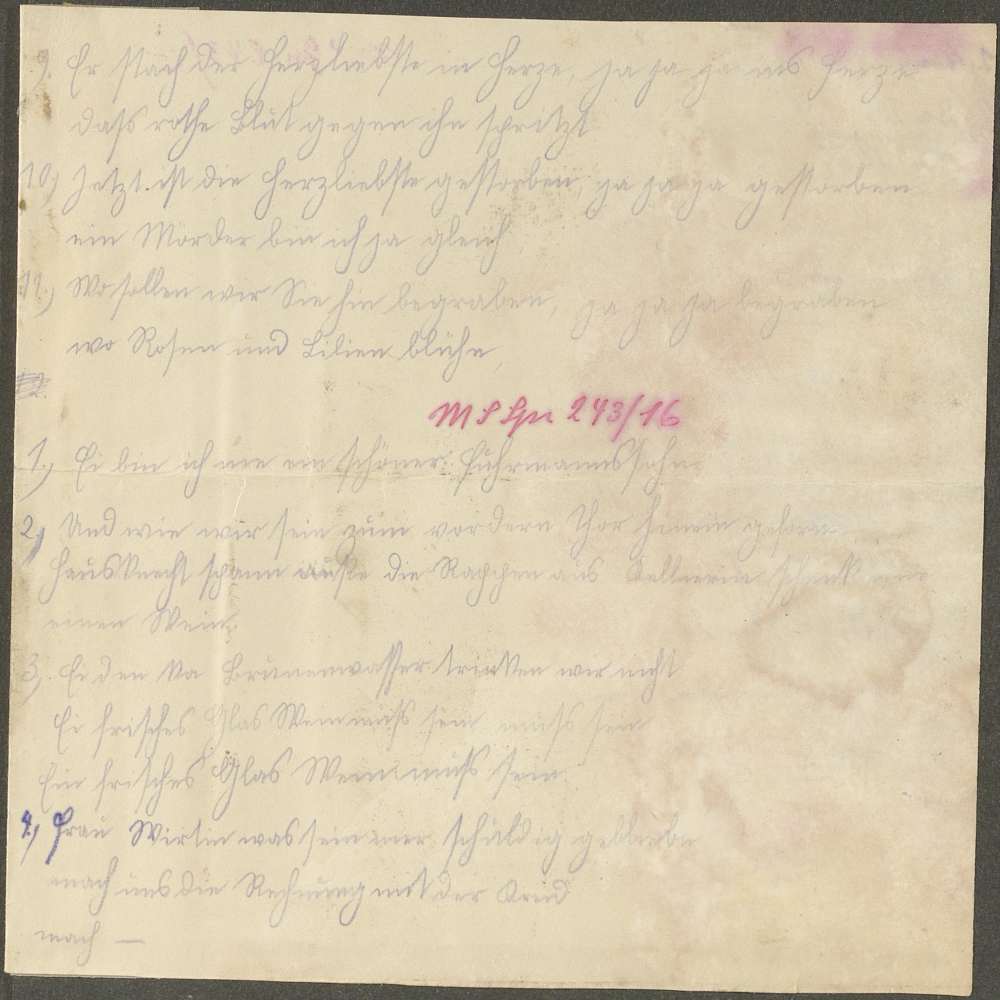 9. Er stach der Herzliebste in Herze, ja ja ja ins Herze
daß rothe Blut gegen ihn spritzt
10.) Jetzt ist die Herzliebste gestorben, ja ja ja gestorben
ein Mörder bin ich ja gleich
11.) Wo sollen wir Sie hin begraben, ja ja ja begraben
wo Rosen und Lilien blühn,
MS 243/16
1.) Ei bin ich nie ein schöner Fuhrmannssohn
2.) Und wie wir sein zum vordern Thor hinein gefarn
Hausknecht spann die Rappen aus Kellnerin schenk
einen Wein.
3.) Ei den Ka Brunenwasser trinken wir nicht
Ei frisches Glas Wein muß sein muß sein
Ein frisches Glas Wein muß sein.
4.) Frau Wirtin was sein mer schuldig gebliebn
mach uns die Rechnung mit der Kreid
mach —